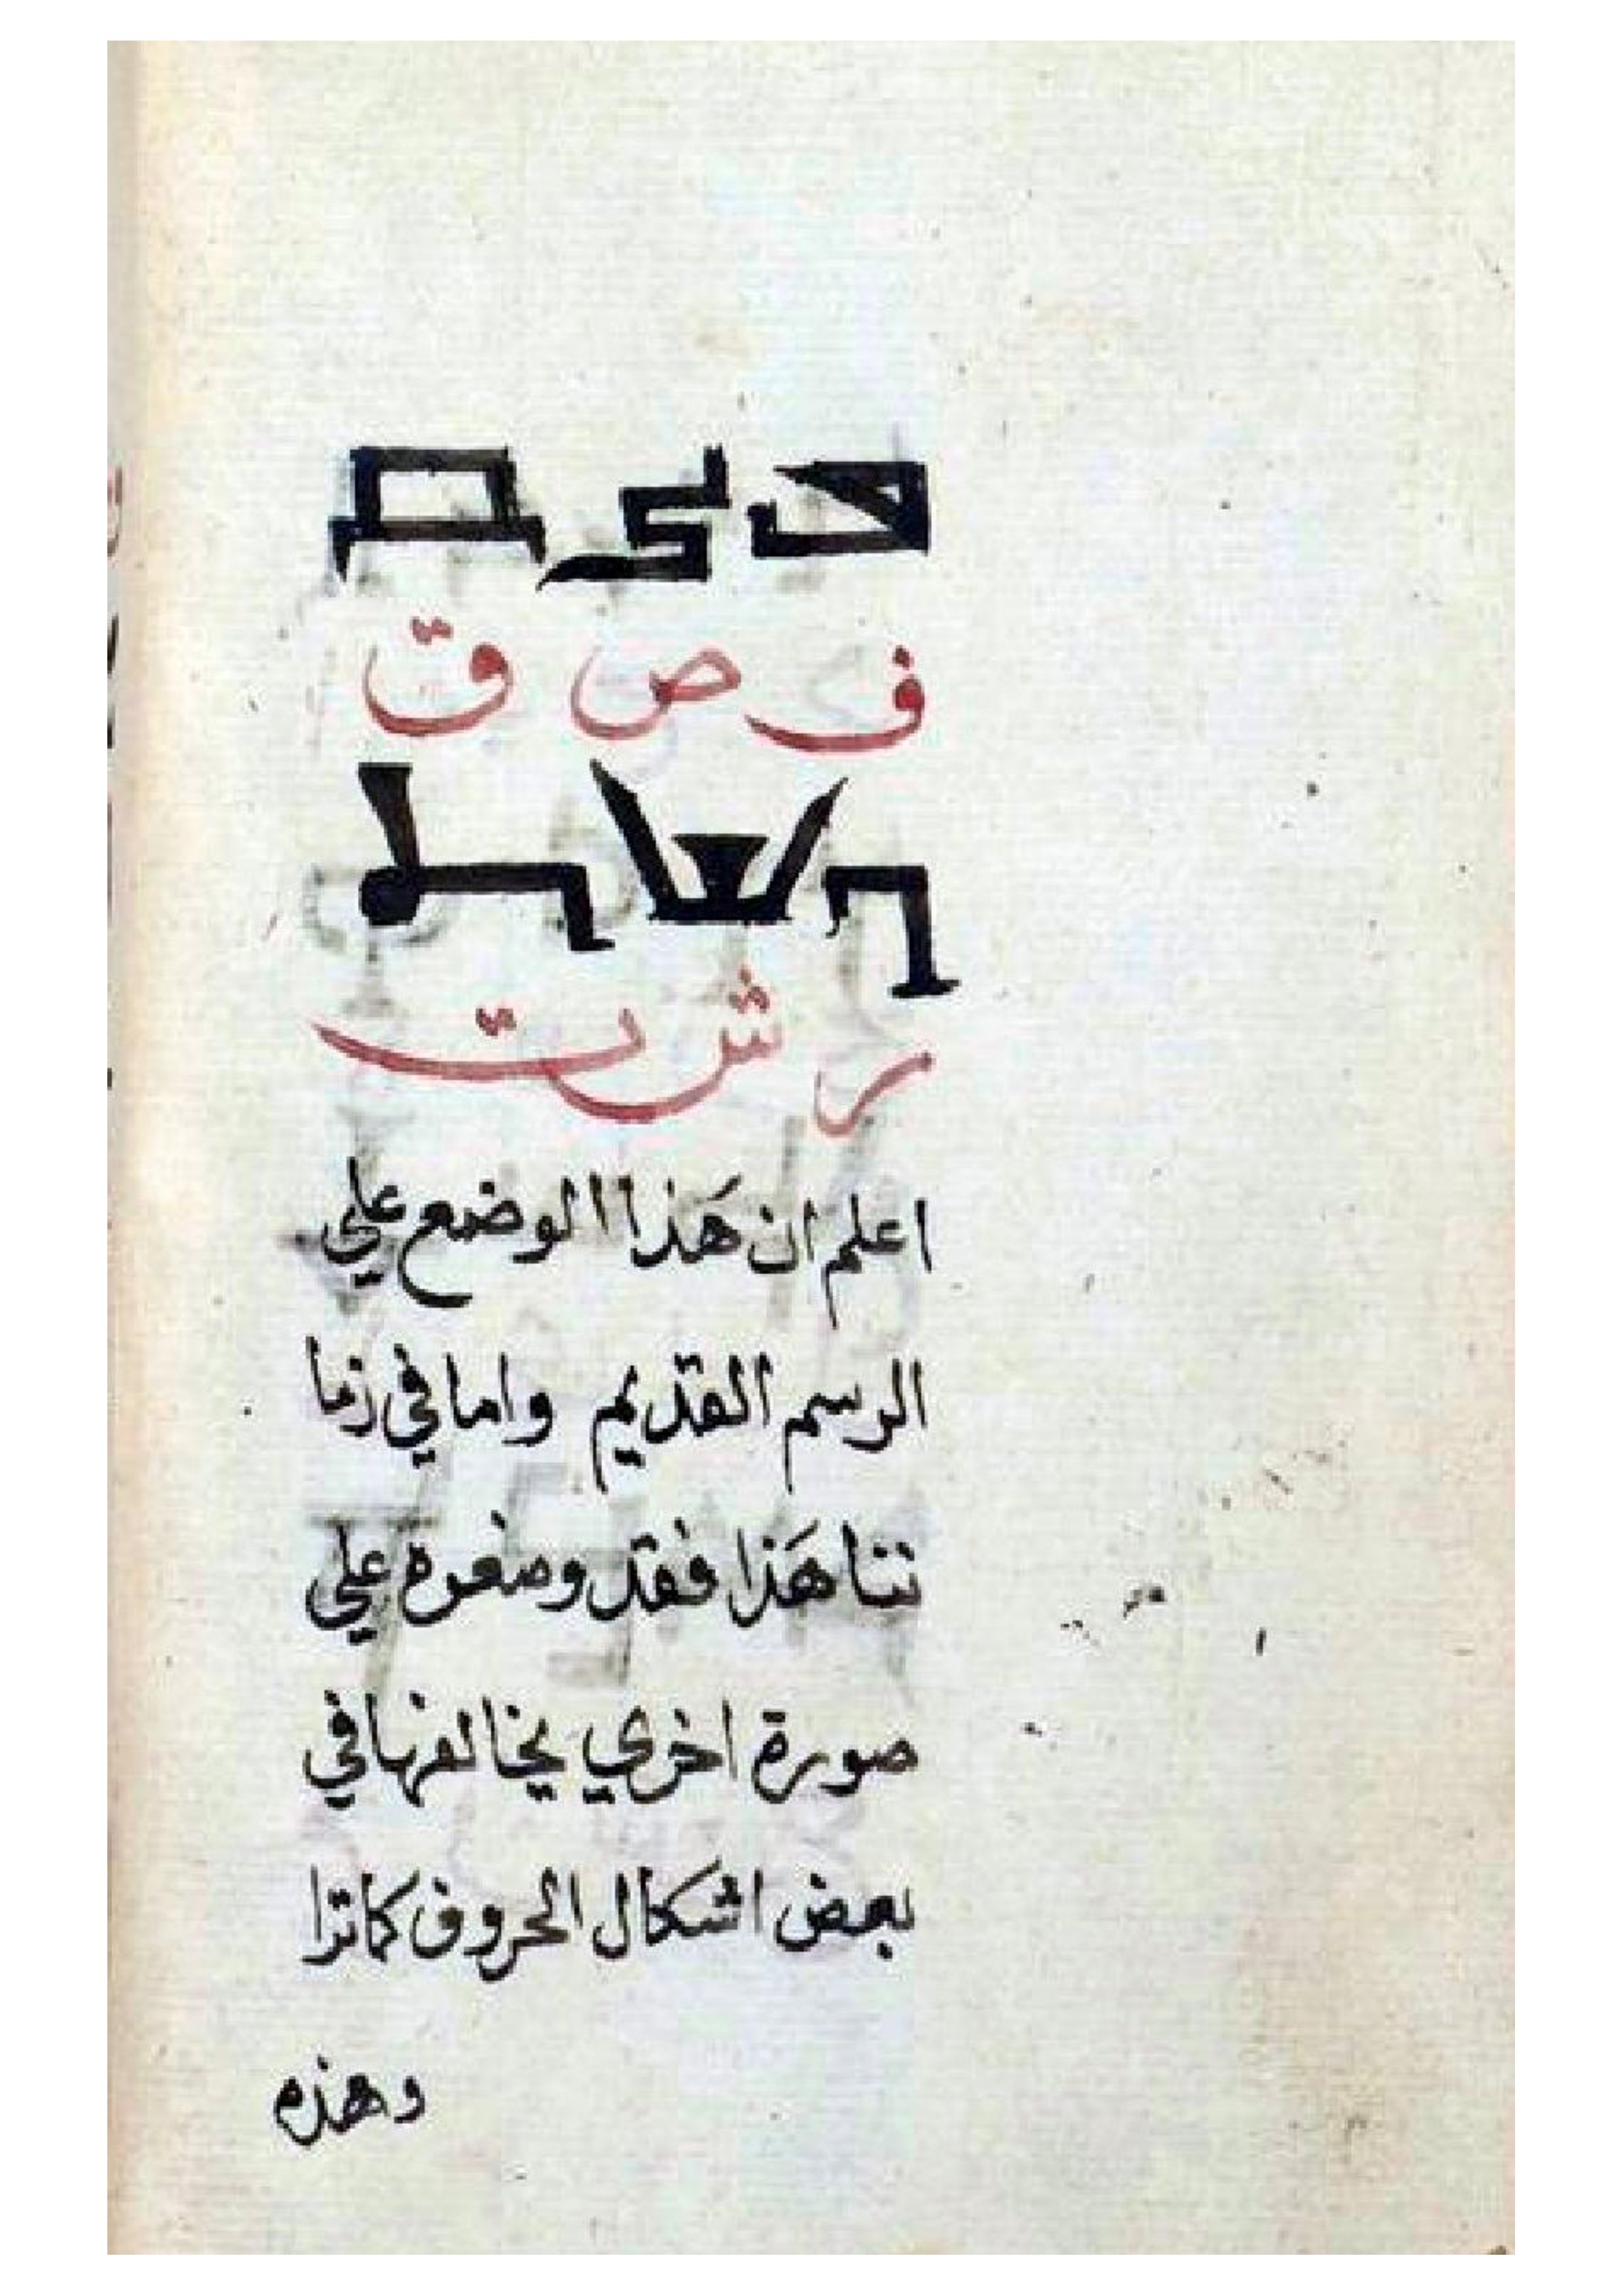 ف ص ق
ر ش ت
اعلم ان هَذا الوضع علي
الرسم القديم واما في زما
ننا هَذا فقد وضعوه علي
صورة اخري يخالفها في
بعض اشكال الحروف كما ترا
وهذه